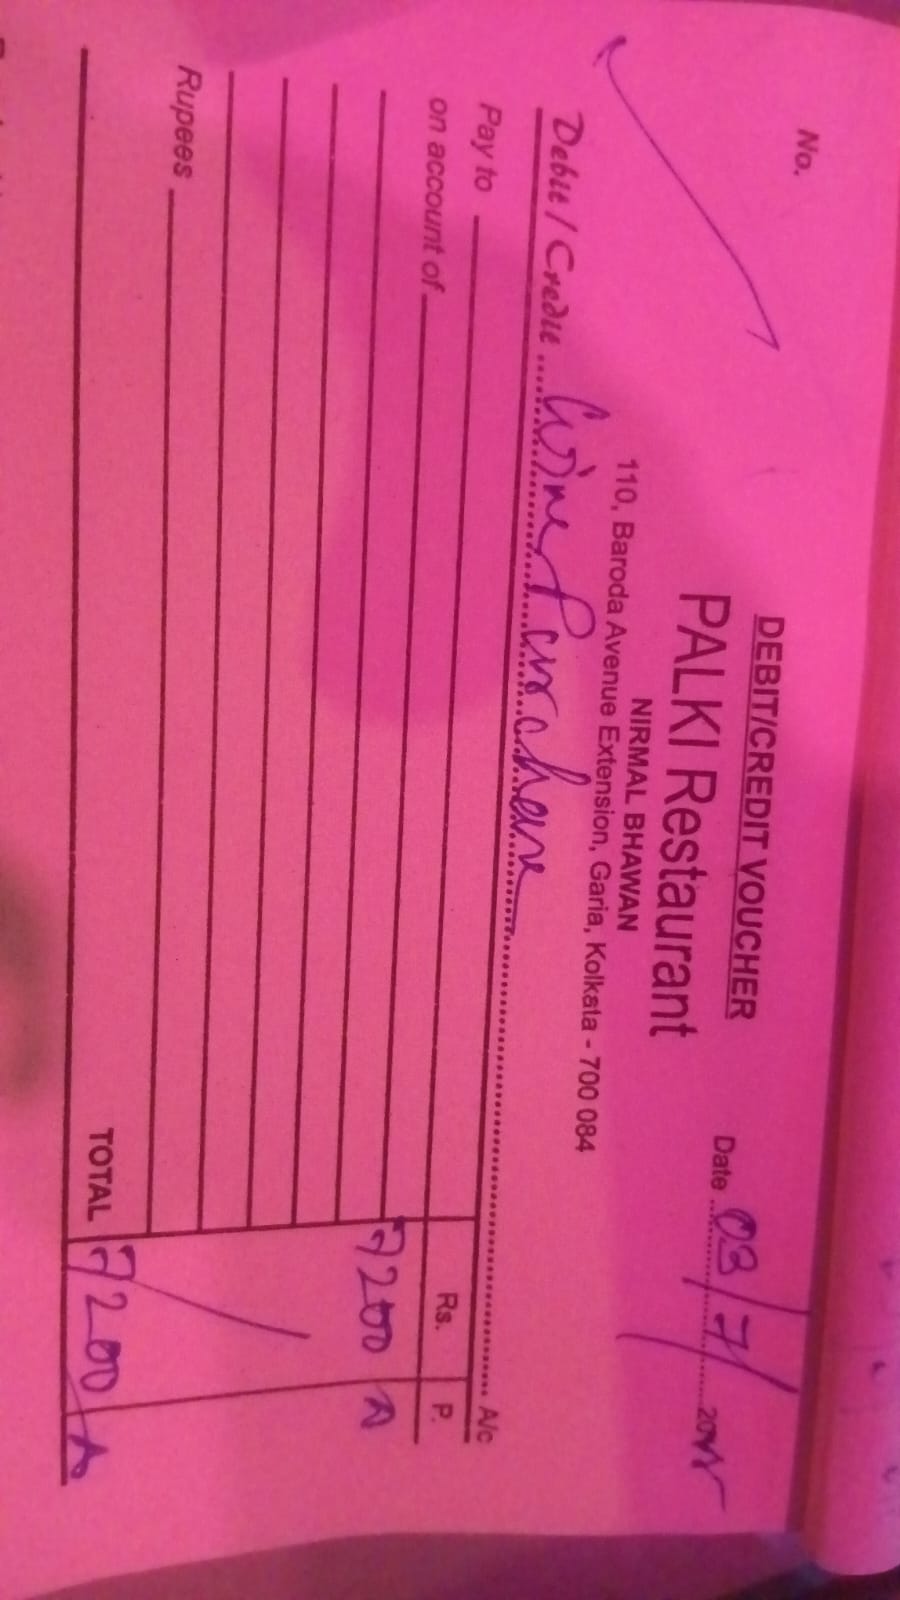 No.
DEBIT/CREDIT VOUCHER
PALKI Restaurant
NIRMAL BHAWAN
110, Baroda Avenue Extension, Garia, Kolkata - 700 084
Date 03/7/ 20
Debit / Credit Wine Purchase A/c
Pay to
Rs. P.
on account of
7200
Rupees
TOTAL 7200